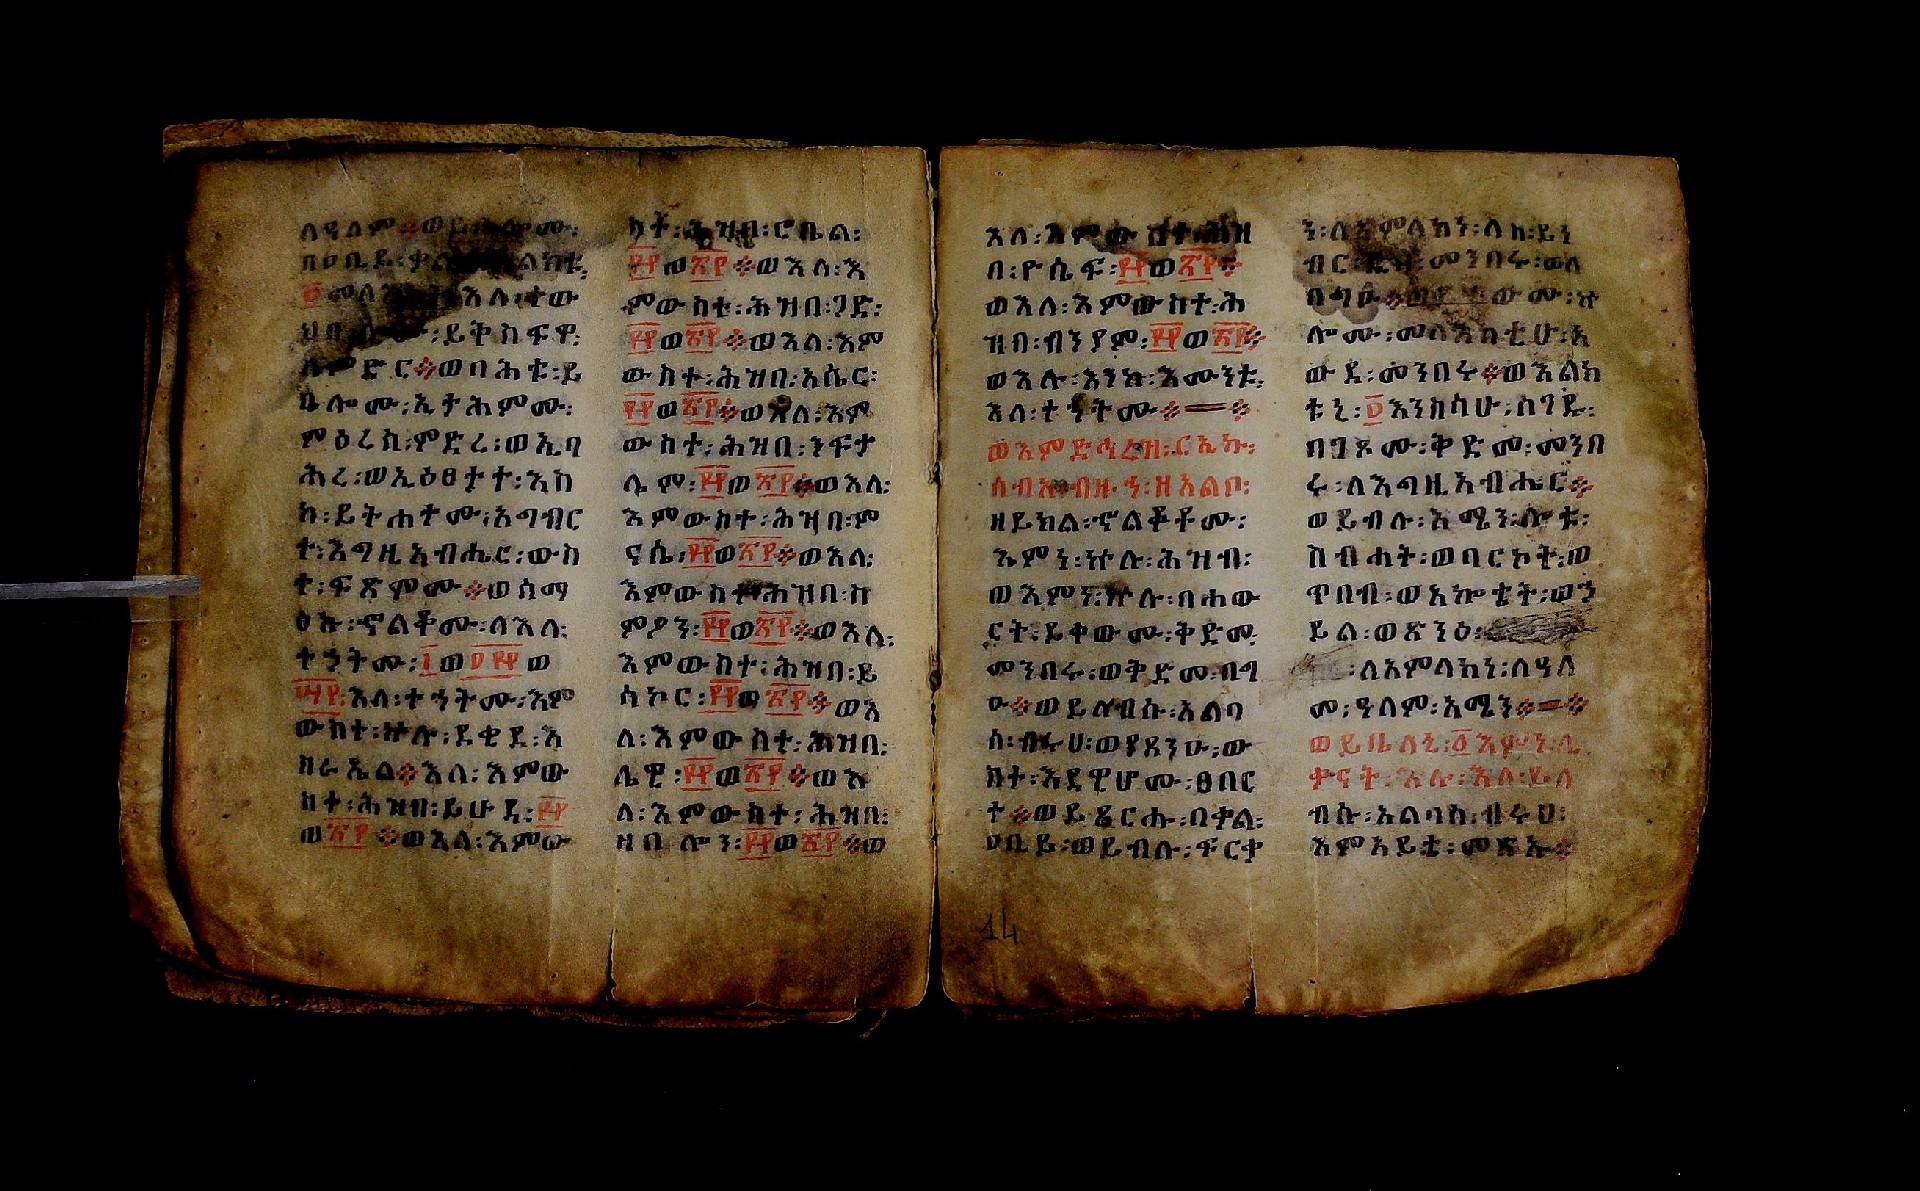 ለዓለም፨ወይቤሎሙ፡
በዐቢይ፡ቃል
፬መላእክት፡እለ፡ተው
ህበ፡ሎሙ፡ይቅስፍዋ፡
ለምድር፨ወባሕቱ፡ይ
ቤሎሙ፡ኢታሕምሙ፡
ምዕረስ፡ምድረ፡ወኢባ
ሕረ፡ወኢዕፀተተ፡እስ
ከ፡ይትሐተሙ፡አግብር
ተ፡እግዚአብሔር፡ውስ
ተ፡ፍጽሞሙ፨ወሰማ
ዕኩ፡ኆልቆሙ፡ለእለ፡
ተኃትሙ፡፲ወ፬፼፼ወ
፵፻፡እለ፡ተኀትሙ፡እም
ውስተ፡ኵሉ፡ደቂደ፡እ
ስራኤል፨እለ፡እምው
ስተ፡ሕዝበ፡ይሁዳ፡፼፻
ወ፳፻፨ወእለ፡እምው
ስተ፡ሕዝበ፡ሮቤል፡
፼፻ወ፳፻፨ወእለ፡እ
ምውስተ፡ሕዝበ፡ጋድ፡
፼፻ወ፳፻፨ወእለ፡እም
ውስተ፡ሕዝበ፡አሴር፡
፼፻ወ፳፻፨ወእለ፡እም
ውስተ፡ሕዝበ፡ንፍታ
ሌም፡፼፻ወ፳፻፨ወእለ፡
እምውስተ፡ሕዝበ፡ም
ናሴ፡፼፻ወ፳፻፨ወእለ፡
እምውስተ፡ሕዝበ፡ስ
ምዖን፡፼፻ወ፳፻፨ወእለ፡
እምውስተ፡ሕዝበ፡ይ
ሳኮር፡፼፻ወ፳፻፨ወእ
ለ፡እምውስተ፡ሕዝበ፡
ሌዊ፡፼፻ወ፳፻፨ወእ
ለ፡እምውስተ፡ሕዝበ፡
ዛቡሎን፡፼፻ወ፳፻፨ወ
እለ፡እምውስተ፡ሕዝ
በ፡ዮሴፍ፡፼፻ወ፳፻፨
ወእለ፡እምውስተ፡ሕ
ዝበ፡ብንያም፡፼፻ወ፳፻፨
ወእሉ፡እንከ፡እሙንቱ፡
እለ፡ተኀትሙ፨━፨
ወእምድኅረዝ፡ርኢኩ፡
ሰብአ፡ብዙኀ፡ዘአልቦ፡
ዘይክል፡ኆልቆቶሙ፡
እምነ፡ኵሉ፡ሕዝብ፡
ወእምነ፡ኵሉ፡በሐው
ርት፡ይቀውሙ፡ቅድመ፡
መንበሩ፡ወቅድመ፡በግ
ዑ፨ወይለብሱ፡አልባ
ሰ፡ብሩሀ፡ወያጸንሁ፡ው
ስተ፡እደዊሆሙ፡ፀበር
ተ፨ወይጼርሑ፡በቃል፡
ዐቢይ፡ወይብሉ፡ፍርቃ
ን፡ለአምላክነ፡ለዘ፡ይነ
ብር፡ዲበ፡መንበሩ፡ወለ
በግዑ፨ወይቀውሙ፡ኵ
ሎሙ፡መላእክቲሁ፡አ
ውደ፡መንበሩ፨ወእልክ
ቱኒ፡፬እንስሳሁ፡ሰገዱ፡
በገጾሙ፡ቅድመ፡መንበ
ሩ፡ለእግዚአብሔር፨
ወይብሉ፡አሜን፡ሎቱ፡
ስብሐት፡ወባርኮት፡ወ
ጥበብ፡ወአኰቴት፡ወኃ
ይል፡ወጽንዕ፡
ለአምላክነ፡ለዓለ
መ፡ዓለም፡አሜን፨━፨
ወይቤለኒ፡፩እምነ፡ሊ
ቃናት፡እሉ፡እለ፡ይለ
ብሱ፡አልባሰ፡ብሩሀ፡
እምአይቴ፡መጽኡ፨
14